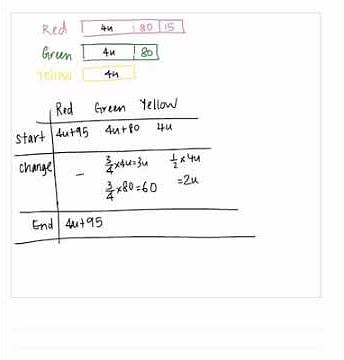 Red 4u 80 15
Green 4u 80
Yellow 4u
Red Green Yellow
Start 4u+95 4u+80 4u
Change - 3/4×4u=3u 1/2×4u
3/4×80=60 =2u
End 4u+95